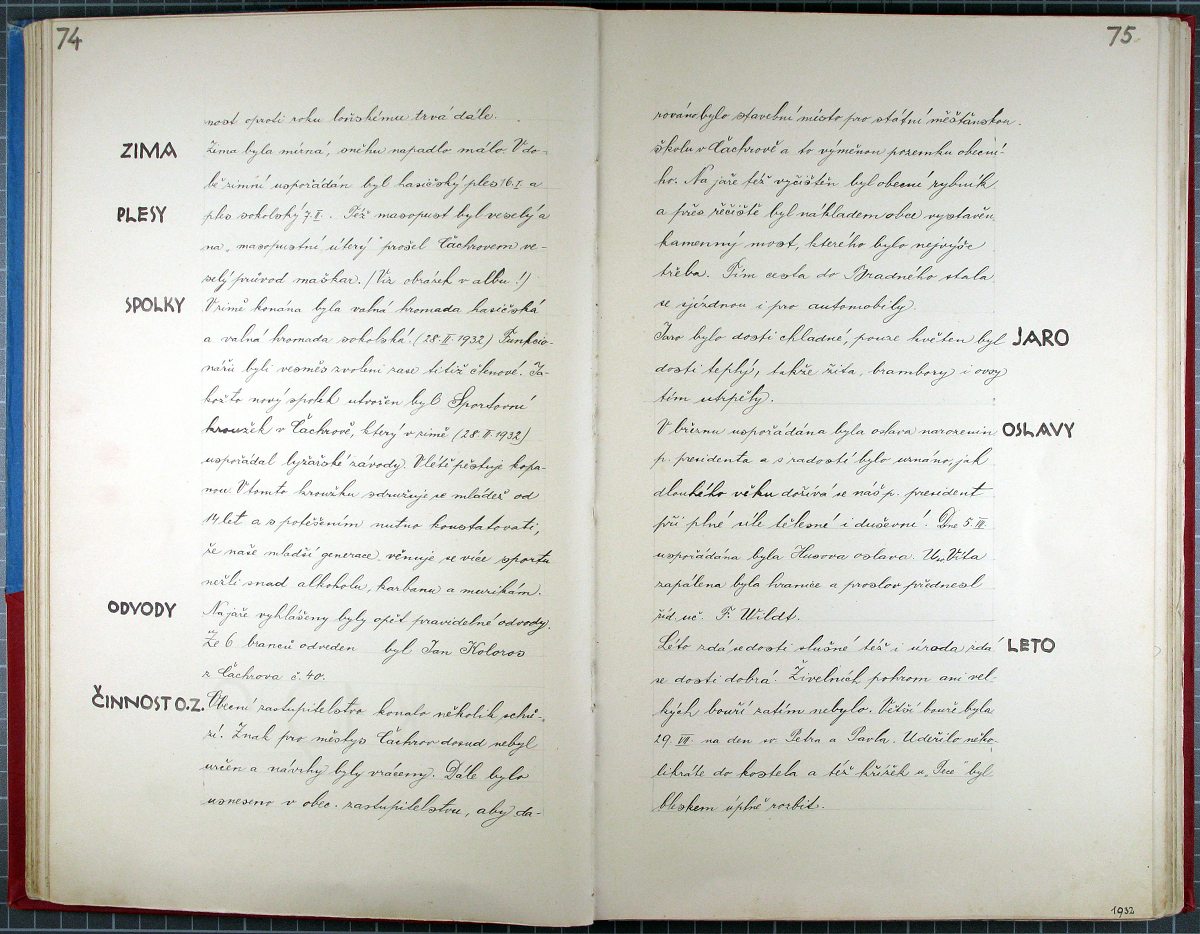 74
nost oproti roku loňskému trvá dále.
ZIMA
Zima byla mírná, sněhu napadlo málo. V do-
bě zimní uspořádán byl hasičský ples 16.I. a
PLESY
ples sokolský 7.II. Též masopust byl veselý a
na „masopustní úterý" prošel Čachrovem ve-
selý průvod maškar. (Viz obrázek v albu!)
SPOLKY
V zimě konána byla valná hromada hasičská
a valná hromada sokolská. (28.II.1932) Funkcio-
náři byli vesměs zvoleni zase titíž členové. Ja-
kožto nový spolek utvořen byl Sportovní
kroužek v Čachrově, který v zimě (28.II.1932)
uspořádal lyžařské závody. V létě pěstuje kopa-
nou. V tomto kroužku sdružuje se mládež od
14 let a s potěšením nutno konstatovati,
že naše mladší generace věnuje se více sportu
nežli snad alkoholu, karbanu a muzikám.
ODVODY
Na jaře vyhlášeny byly opět pravidelné odvody.
Ze 6 branců odveden byl Jan Koloros
z Čachrova č. 40.
ČINNOST O.Z.
Obecní zastupitelstvo konalo několik schů-
zí. Znak pro městys Čachrov dosud nebyl
určen a návrhy byly vráceny. Dále bylo
usneseno v obec. zastupitelstvu, aby da-
75
rováno bylo stavební místo pro státní měšťanskou
školu v Čachrově a to výměnou pozemku obecní-
ho. Na jaře též vyčištěn byl obecní rybník
a přes řečiště byl nákladem obce vystavěn
kamenný most, kterého bylo nejvýše
třeba. Tím cesta do Bradného stala
se sjízdnou i pro automobily.
JARO
Jaro bylo dosti chladné, pouze květen byl
dosti teplý, takže žita, brambory i ovsy
tím utrpěly.
OSLAVY
V březnu uspořádána byla oslava narozenin
p. presidenta a s radostí bylo uznáno, jak
dlouhého věku dožívá se náš p. president
při plné síle tělesné i duševní. Dne 5.VII.
uspořádána byla Husova oslava. U sv. Víta
zapálena byla hranice a proslov přednesl
říd. uč. F. Wildt.
LETO
Léto zdá se dosti slušné též i úroda zdá
se dosti dobrá. Živelních pohrom ani vel-
kých bouří zatím nebylo. Větší bouře byla
29.VII. na den sv. Petra a Pavla. Udeřilo něko-
likráte do kostela a též křížek u „Pece" byl
bleskem úplně rozbit.
1932